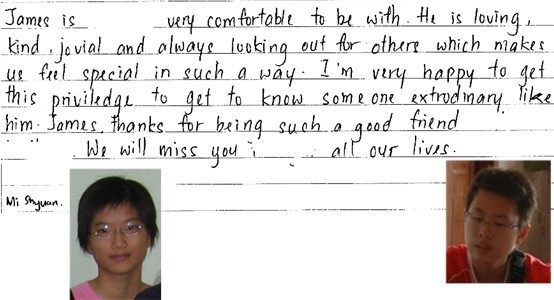 James is very comfortable to be with. He is loving,
kind, jovial and always looking out for others which makes
us feel special in such a way. I'm very happy to get
this priviledge to get to know someone extrodinary like
him. James, thanks for being such a good friend
We will miss you all our lives.
Mi Shyuan.